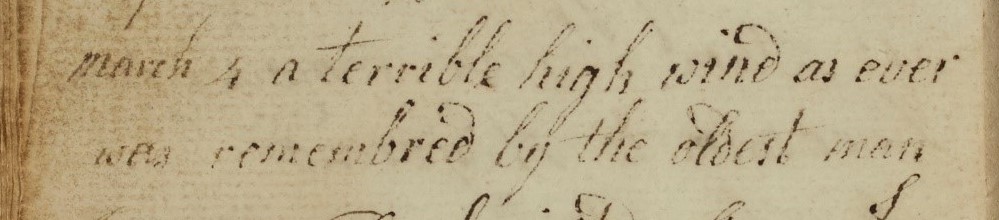 march 4 a terrible high wind as ever
was remembred by the oldest man